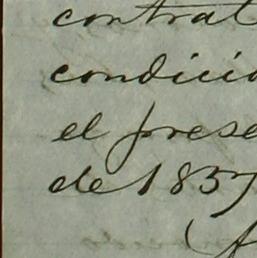 contrat
condicio
el prese
de 1857